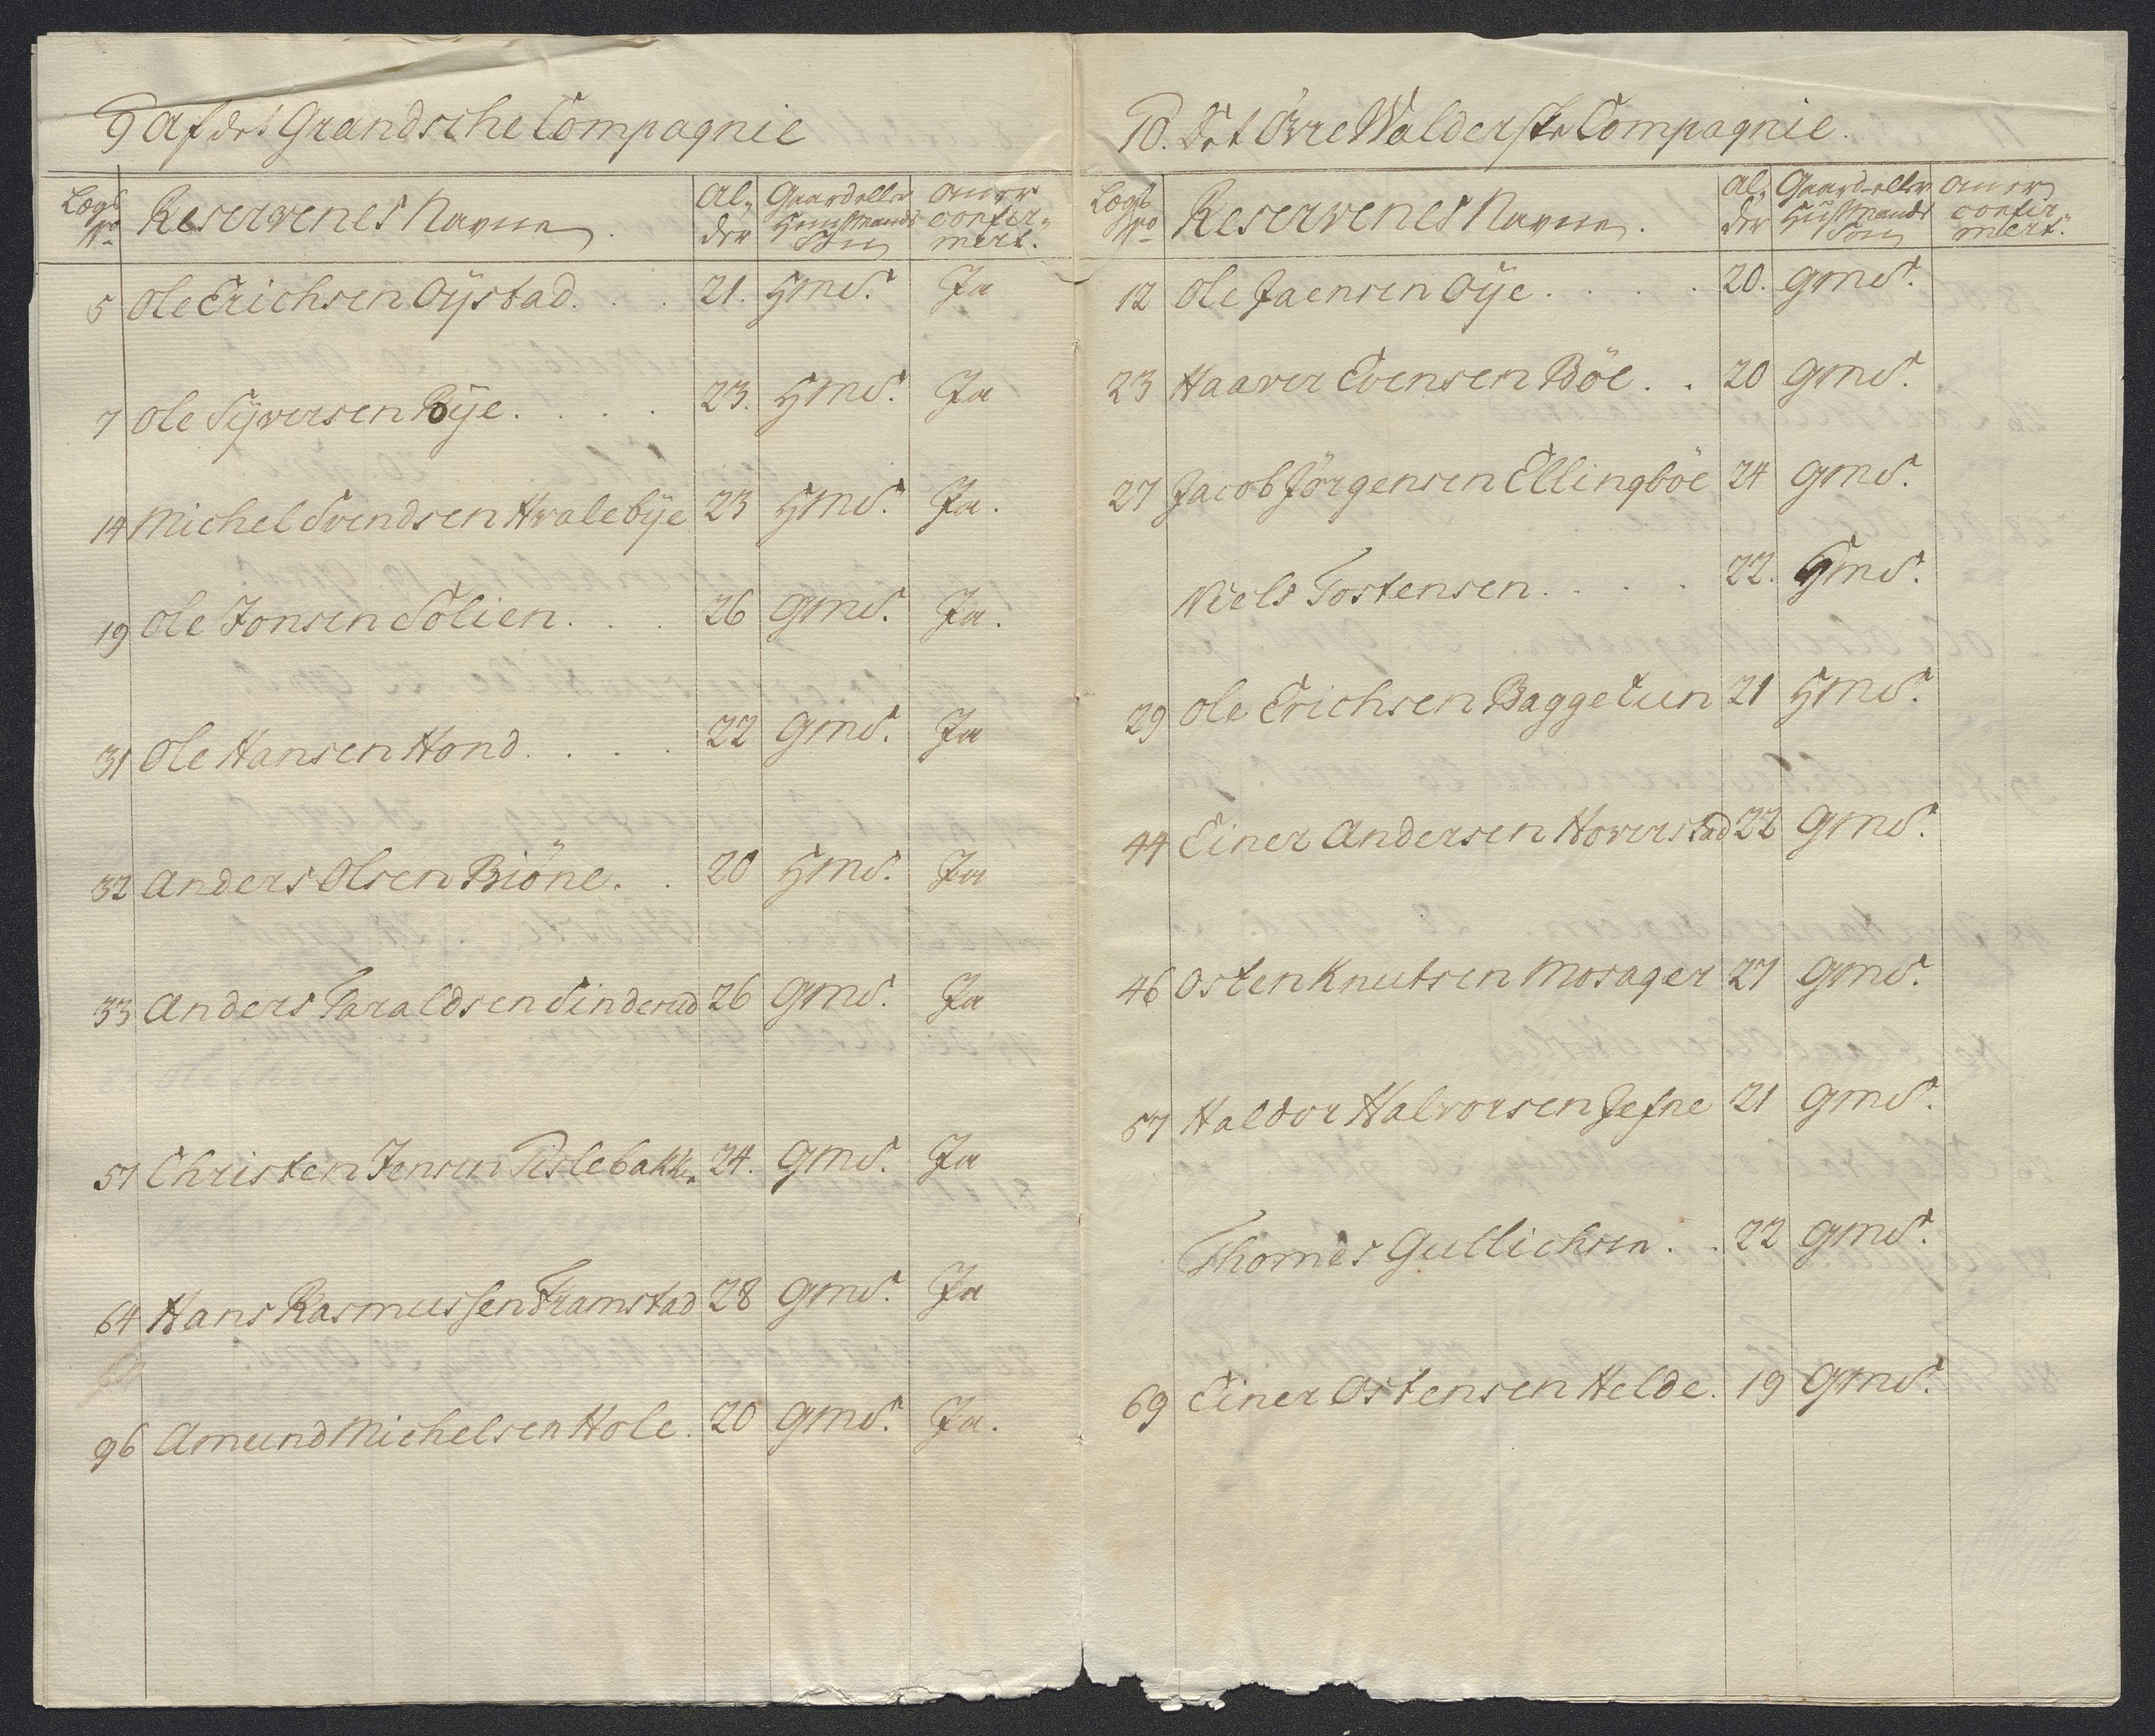 9 Af det Grandsche Compagnie
Lægs No Reservenes Navne. Al„der Gaard eller Huusmands Søn om er confir„mert.
5 Ole Erichsen Oÿstad. . . 21. HmS. Ja
7 Ole Syversen Bÿe. . . . 23. HmS. Ja
14 Michel Svendsen Hvalebÿe 23 HmS. Ja.
19 Ole Jonsen Sölien. . . 26 GmS. Ja.
31 Ole Hansen Hond. . . . 22 GmS. Ja
32 Anders Olsen Biöne. . 20 HmS. Ja
33 Anders Taraldsen Sinderud 26 GmS. Ja
51 Christen Jensen Pislebakk. 24. GmS. Ja
64 Hans Rasmussen Framstad 28 GmS. Ja
96 Amund Michelsen Hole. 20 GmS. Ja.
10. Det Övre Walderske Compagnie.
Lægs No Reservenes Navne. Al„der Gaard eller Huusmands Søn om er confir„mert.
12 Ole Jaensen Oÿe. . . . . 20. GmS.
23 Haaver Evensen Böe. . 20 GmS.
27 Jacob Jörgensen Ellingböe 24 GmS.
Niels Tostensen. . . . 22. HmS.
29 Ole Erichsen Baggetun 21 HmS.
44 Einer Andersen Hoverstad 22 GmS.
46 Osten Knutsen Mosager 27 GmS.
57 Haldor Halvorsen Jefne 21 GmS.
Thomes Gullichsen. . 22 GmS.
69 Einer Ostensen Helde. 19 GmS.